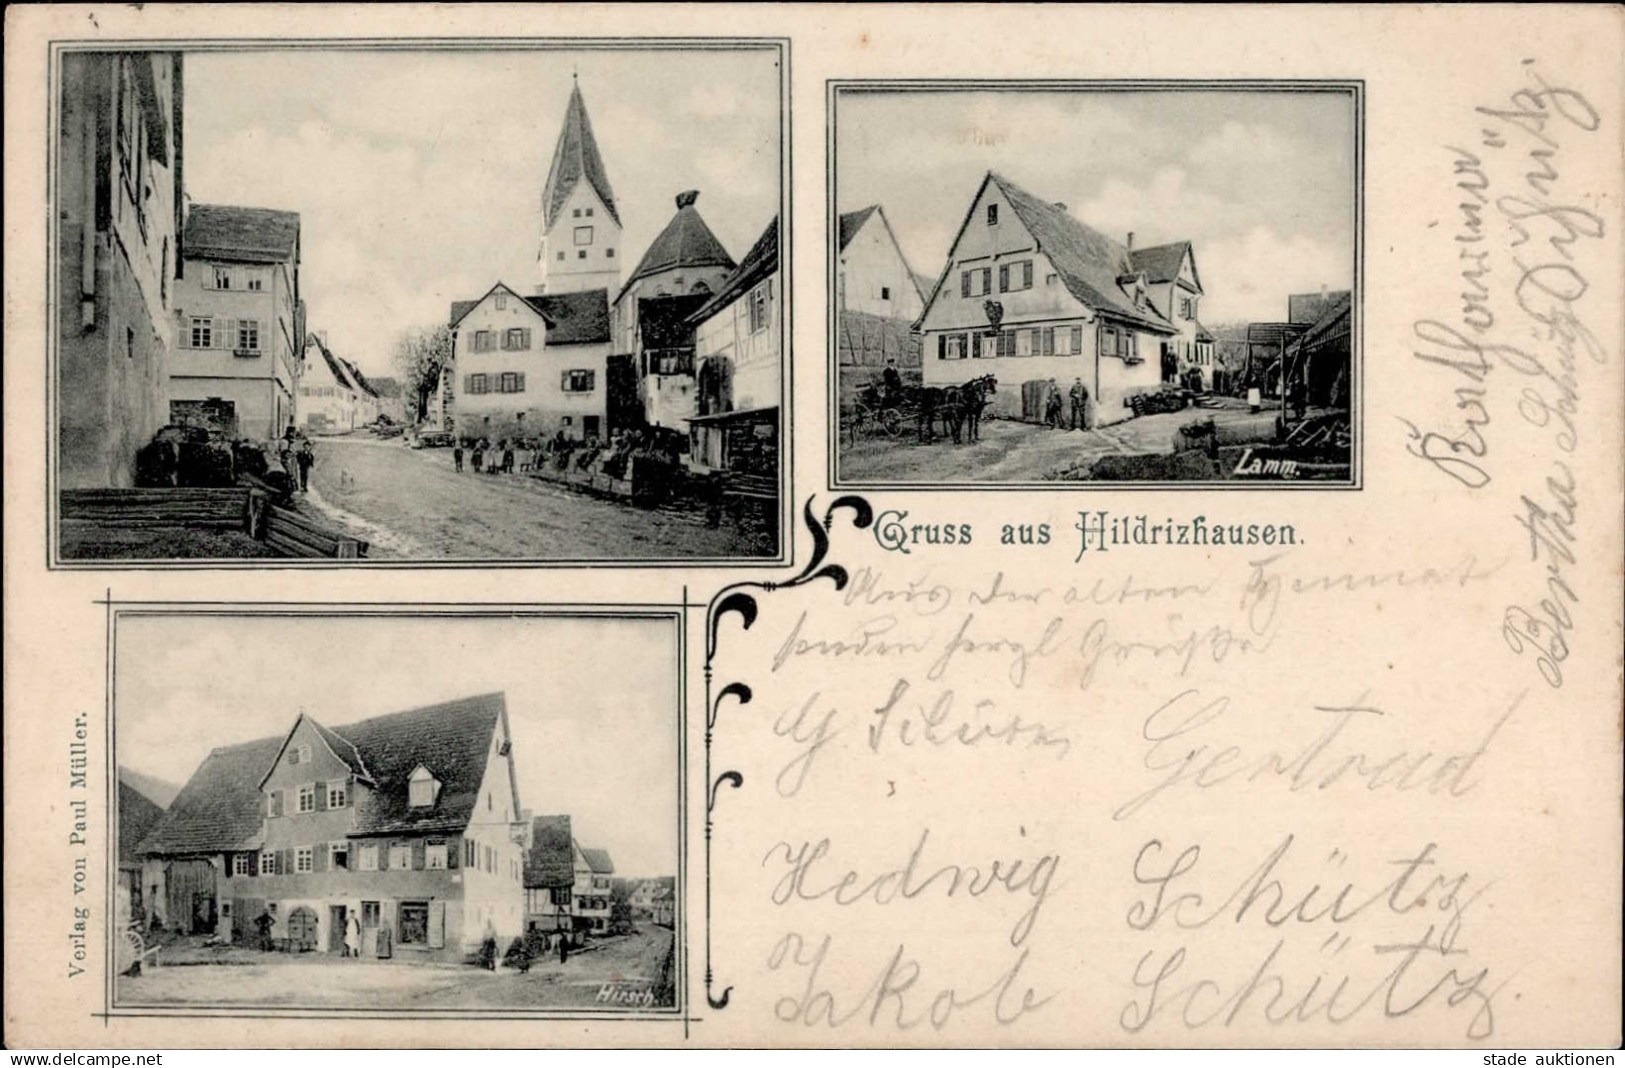 Lamm.
Gruss aus Hildrizhausen.
Aus der alten Heimat
senden herzl Grüße
Schürr Gertrud
Hedwig Schütz.
Jakob Schütz.
Bertha Schütz
Hirsch.
Verlag von Paul Müller.
www.delcampe.net
stade auktionen